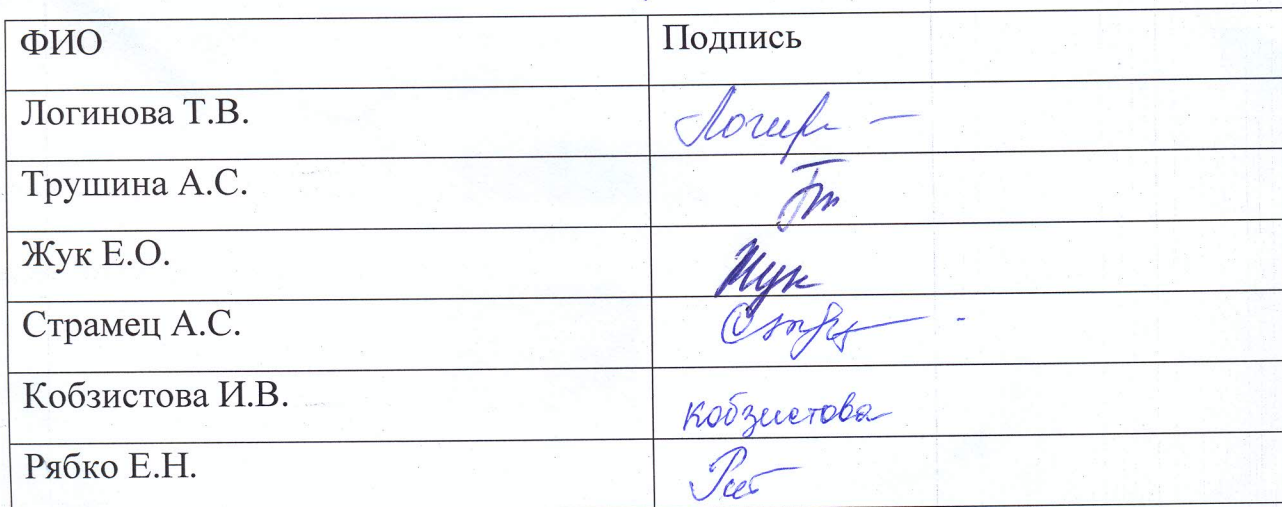 ФИО Подпись
Логинова Т.В.
Трушина А.С.
Жук Е.О. Жук
Страмец А.С.
Кобзистова И.В. кобзистова
Рябко Е.Н.